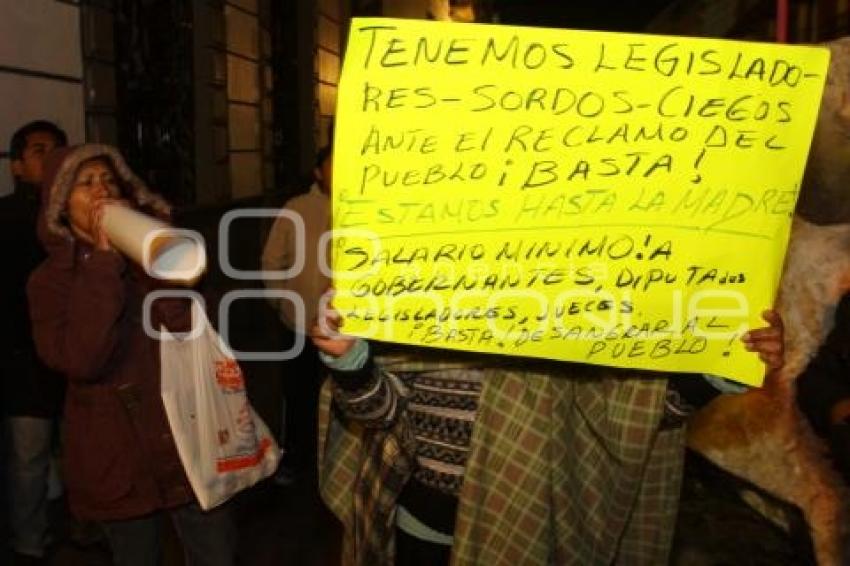 TENEMOS LEGISLADO-
RES-SORDOS-CIEGOS
ANTE El RECLAMO DEL
PUEBLO ¡BASTA!
¡ESTAMOS HASTA LA MADRE!
SALARIO MINIMO! A
GOBERNANTES, DIPUTADOS
LEGISLADORES, JUECES.
¡BASTA! DESANGRAR AL
PUEBLO!
enfoque